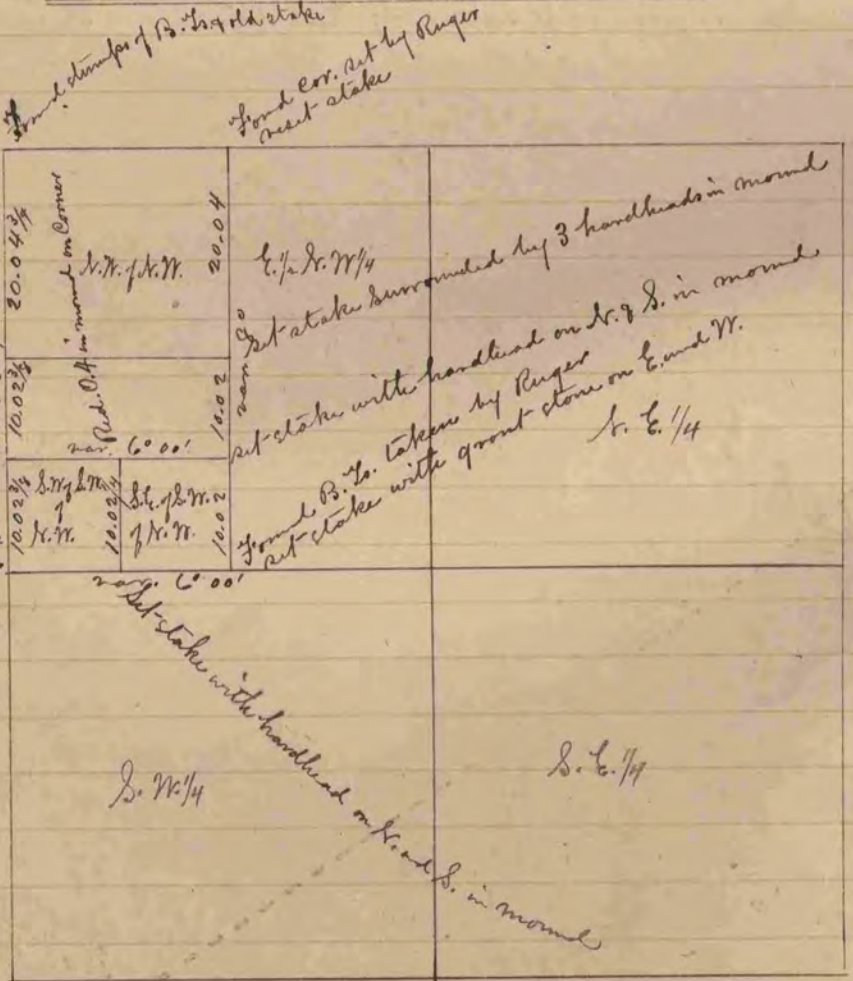 Found stumps of B. Ts & old stake
Found cor. set by Ruger
reset stake
20.04 3/4
Red. O.A in mound on Corner
N.W. of N.W.
20.04
E. 1/2 N.W 1/4
Set stake surrounded by 3 hardheads in mound
set stake with hardhead on N. & S. in mound
Found B. Ts. taken by Ruger
set stake with grout stone on E. and W.
N. E. 1/4
10.02 3/8
10.02
var. 6° 00'
10.02 3/8
S.W of S.W.
of
N.W.
10.02 1/4
S.E. of S.W.
of N.W.
10.02
var. 6° 00'
Set stake with hardhead on N. and S. in mound
S. W. 1/4
S. E. 1/4